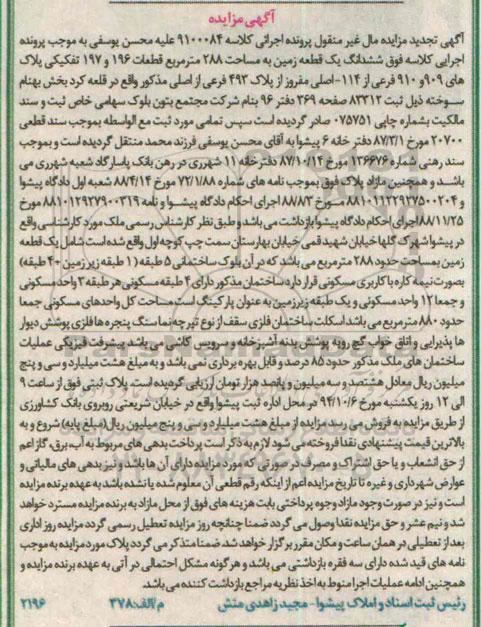 آگهی مزایده
آگهی تجدید مزایده مال غیر منقول پرونده اجرائی کلاسه ۹۱۰۰۰۸۴ علیه محسن یوسفی به موجب پرونده
اجرایی کلاسه فوق ششدانگ یک قطعه زمین به مساحت ۲۸۸ مترمربع قطعات ۱۹۶ و ۱۹۷ تفکیکی پلاک
های ۹۰۹ و ۹۱۰ فرعی از ۱۱۴- اصلی مفروز از پلاک ۴۹۳ فرعی از اصلی مذکور واقع در قلعه کرد بخش بهنام
سوخته ذیل ثبت ۸۳۳۱۲ صفحه ۳۶۹ دفتر ۹۶ بنام شرکت مجتمع بتون بلوک سهامی خاص ثبت و سند
مالکیت بشماره چاپی ۰۷۵۷۵۱ صادر گردیده است سپس تمامی مورد ثبت مع الواسطه بموجب سند قطعی
۲۰۷۰۰ مورخ ۸۷/۳/۱ دفتر خانه ۶ پیشوا به آقای محسن یوسفی فرزند محمد منتقل گردیده است و بموجب
سند رهنی شماره ۱۳۶۶۷۶ مورخ ۸۷/۱۰/۱۴ دفترخانه ۱۱ شهرری در رهن بانک پاسارگاد شعبه شهرری می
باشد و همچنین مازاد پلاک فوق بموجب نامه های شماره ۷۲/۱/۸۸ مورخ ۸۸/۴/۱۴ شعبه اول دادگاه پیشوا
و ۸۸۱۰۱۱۲۲۹۲۷۵۰۰۲۰۴ مورخ ۸۸/۸/۳ اجرای احکام دادگاه پیشوا و نامه ۸۸۱۰۱۲۹۲۷۹۰۰۳۱۹ مورخ
۸۸/۱۱/۲۵ اجرای احکام دادگاه پیشوا بازداشت می باشد و طبق نظر کارشناس رسمی ملک مورد کارشناسی واقع
در پیشوا شهرک گلها خیابان شهید قمی خیابان بهارستان سمت چپ کوچه اول واقع شده است شامل یک قطعه
زمین بمساحت حدود ۲۸۸ مترمربع می باشد که در آن بلوک ساختمانی ۵ طبقه (۱ طبقه زیر زمین +۴ طبقه)
بصورت نیمه کاره با کاربری مسکونی قرار دارد ساختمان مذکور دارای ۴ طبقه مسکونی هر طبقه ۳ واحد مسکونی
و جمعا ۱۲ واحد مسکونی و یک طبقه زیرزمین به عنوان پارکینگ است مساحت کل واحدهای مسکونی جمعا
حدود ۸۸۰ مترمربع می باشد اسکلت ساختمان فلزی سقف از نوع تیرچه نما سنگ پنجره ها فلزی پوشش دیوار
ها پذیرایی و اتاق خواب گچ رویه پوشش بدنه آشپزخانه و سرویس کاشی می باشد پیشرفت فیزیکی عملیات
ساختمان های ملک مذکور حدود ۸۵ درصد و قابل بهره برداری نمی باشد و به مبلغ هشت میلیارد و سی و پنج
میلیون ریال معادل هشتصد و سه میلیون و پانصد هزار تومان ارزیابی گردیده است. پلاک ثبتی فوق از ساعت ۹
الی ۱۲ روز یکشنبه مورخ ۹۴/۱۰/۶ در محل اداره ثبت پیشوا واقع در خیابان شریعتی روبروی بانک کشاورزی
از طریق مزایده به فروش می رسد مزایده از مبلغ هشت میلیارد و سی و پنج میلیون ریال(مبلغ پایه) شروع و به
بالاترین قیمت پیشنهادی نقدا فروخته می شود لازم به ذکر است پرداخت بدهی های مربوط به آب، برق، گاز اعم
از حق انشعاب و یا حق اشتراک و مصرف در صورتی که مورد مزایده دارای آن ها باشد و نیز بدهی های مالیاتی و
عوارض شهرداری و غیره تا تاریخ مزایده اعم از اینکه رقم قطعی آن معلوم شده یا نشده باشد به عهده برنده مزایده
است و نیز در صورت وجود مازاد وجوه پرداختی بابت هزینه های فوق از محل مازاد به برنده مزایده مسترد خواهد
شد و نیم عشر و حق مزایده نقدا وصول می گردد ضمنا چنانچه روز مزایده تعطیل رسمی گردد مزایده روز اداری
بعد از تعطیلی در همان ساعت و مکان مقرر برگزار خواهد شد. ضمنا متذکر می گردد پلاک مورد مزایده به موجب
نامه های قید شده دارای سه فقره بازداشتی می باشد و هرگونه مشکل احتمالی در آتی به عهده برنده مزایده و
همچنین ادامه عملیات اجرا منوط به اخذ نظریه مراجع بازداشت کننده می باشد.
رئیس ثبت اسناد و املاک پیشوا - مجید زاهدی منش م/الف:۳۷۸ ۲۱۹۶